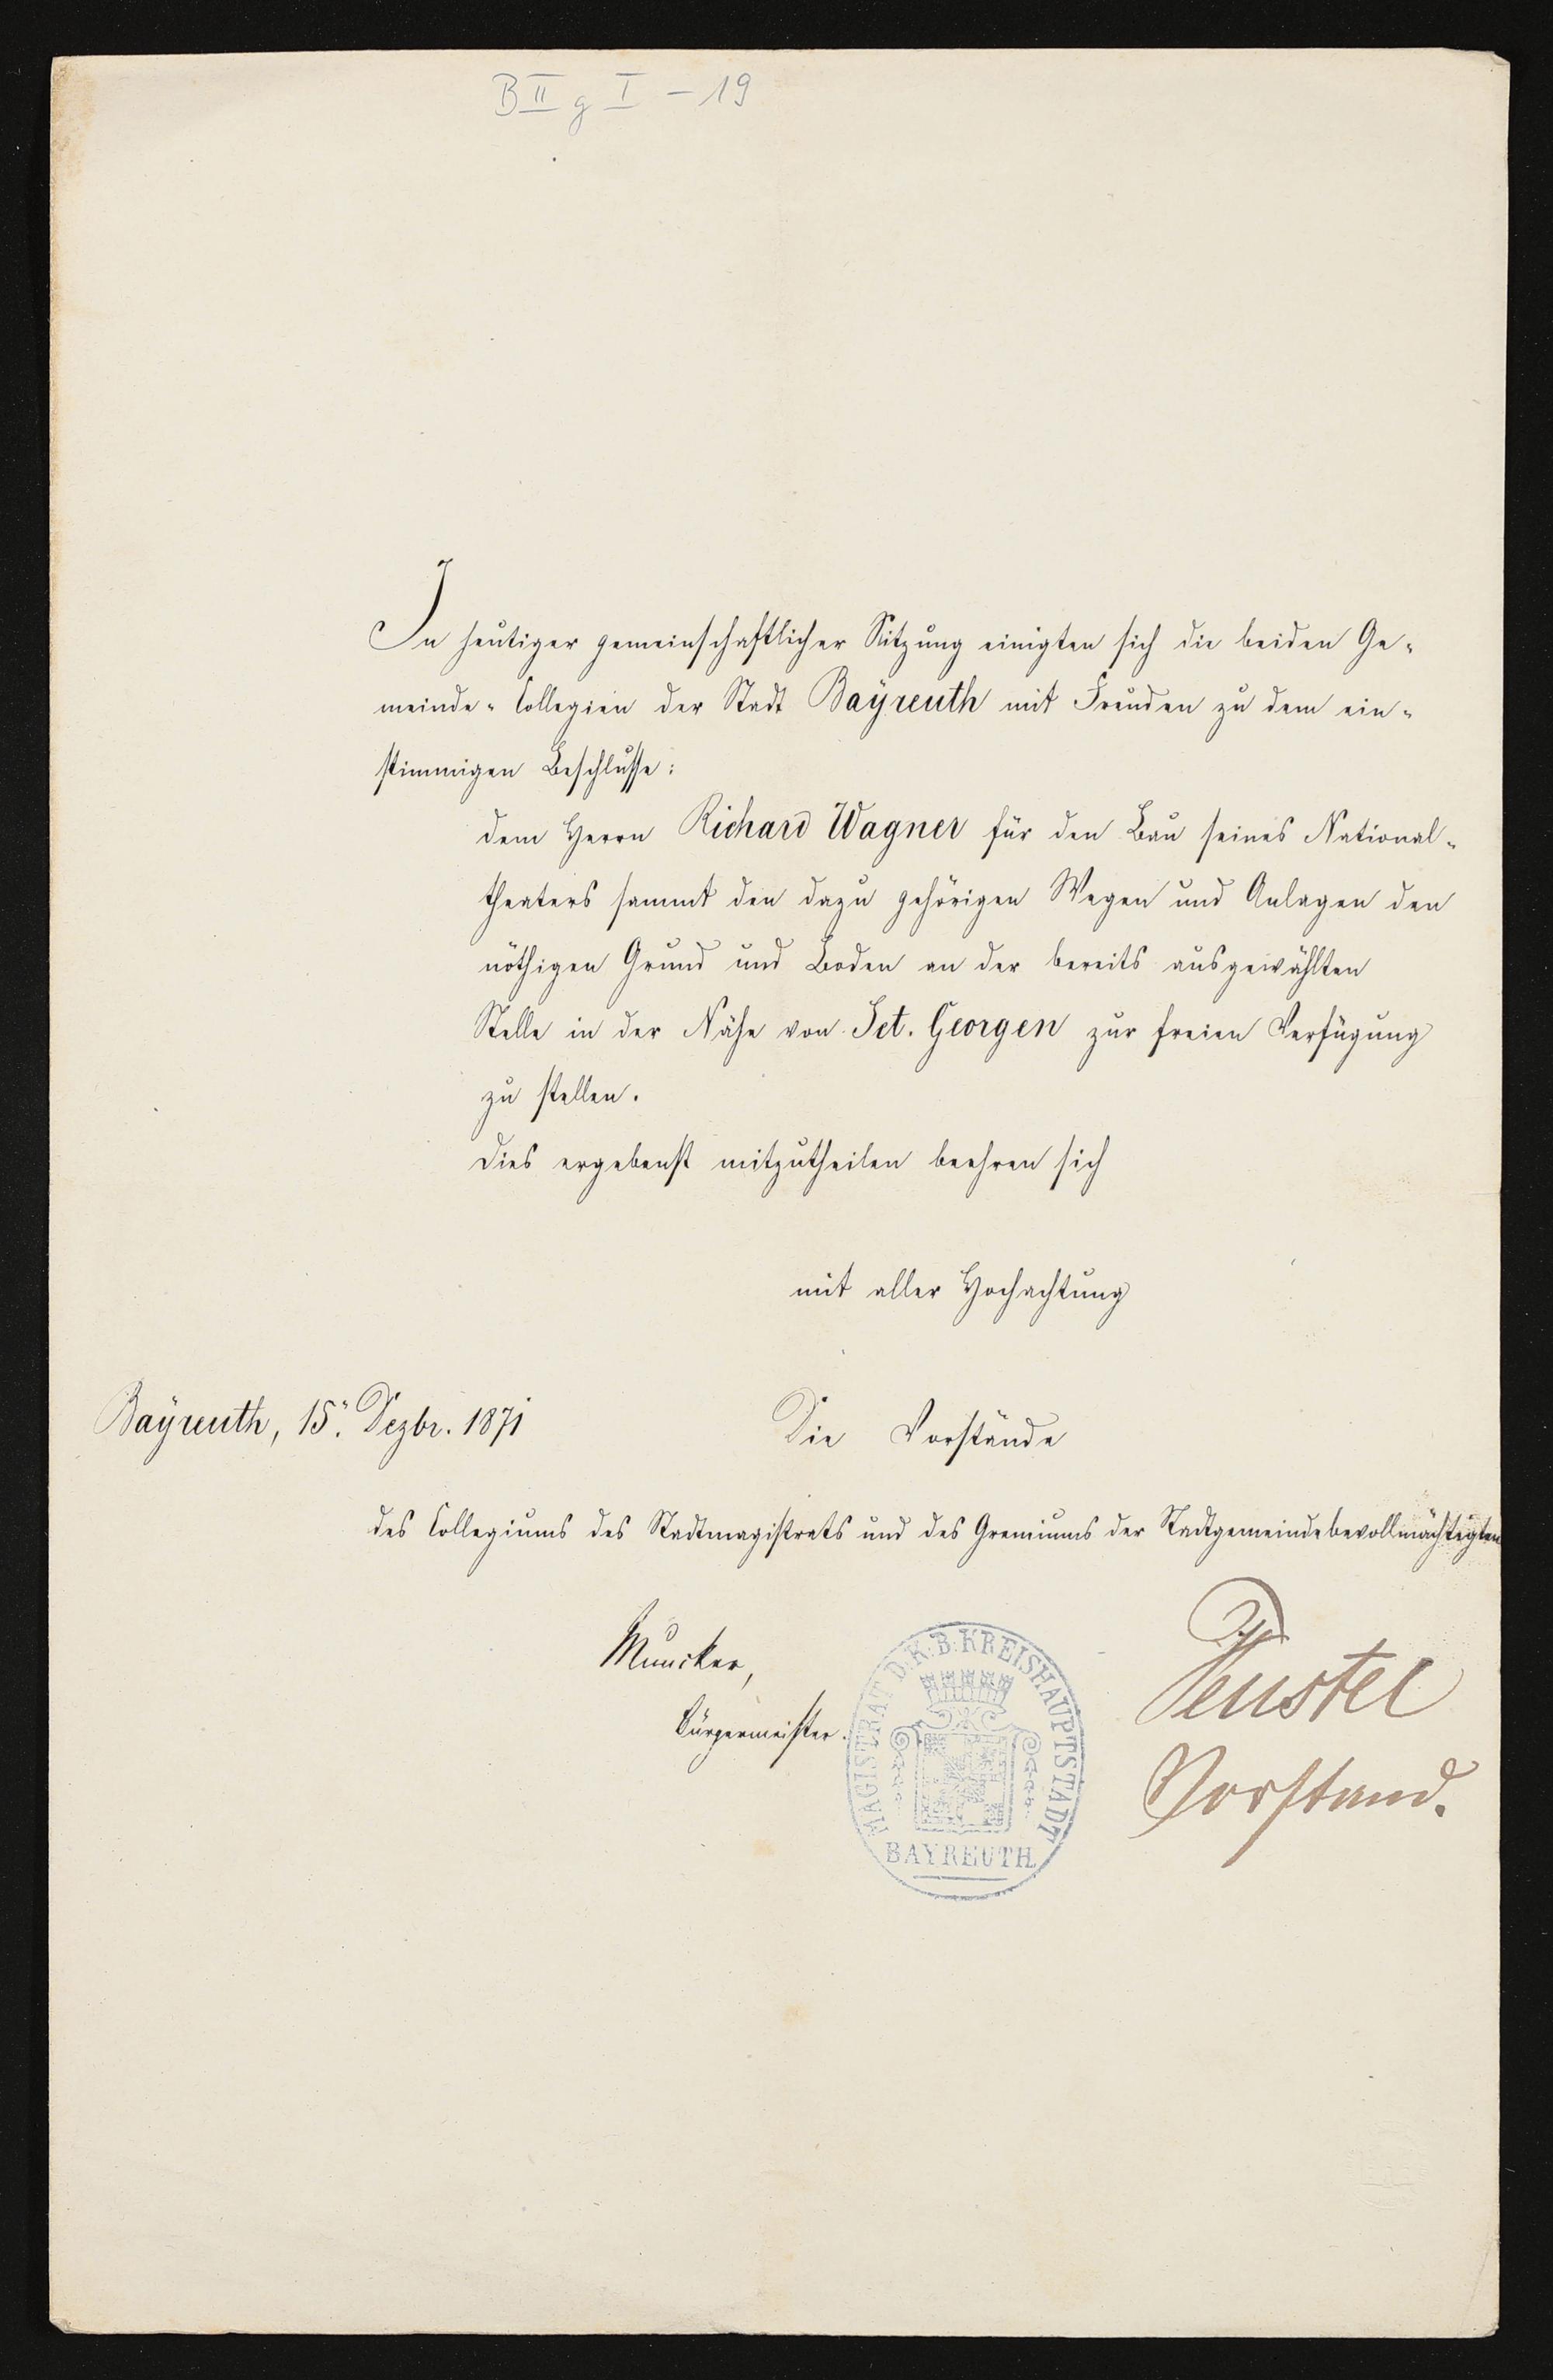 B II g I - 19
In heutiger gemeinschaftlicher Sitzung einigten sich die beiden Ge-
meinde-Collegien der Stadt Bayreuth mit Freuden zu dem ein-
stimmigen Beschlusse:
dem Herrn Richard Wagner für den Bau seines National-
theaters sammt den dazu gehörigen Wegen und Anlagen den
nöthigen Grund und Boden an der bereits ausgewählten
Stelle in der Nähe von Sct. Georgen zur freien Verfügung
zu stellen.
Dies ergebenst mitzutheilen beehren sich
mit aller Hochachtung
Bayreuth, 15. Dezbr. 1871
Die Vorstände
des Collegiums des Stadtmagistrats und des Gremiums der Stadtgemeindebevollmächtigten
Muncker,
Bürgermeister.
MAGISTRAT D. K. B. KREISHAUPTSTADT
BAYREUTH
Feustel
Vorstand.